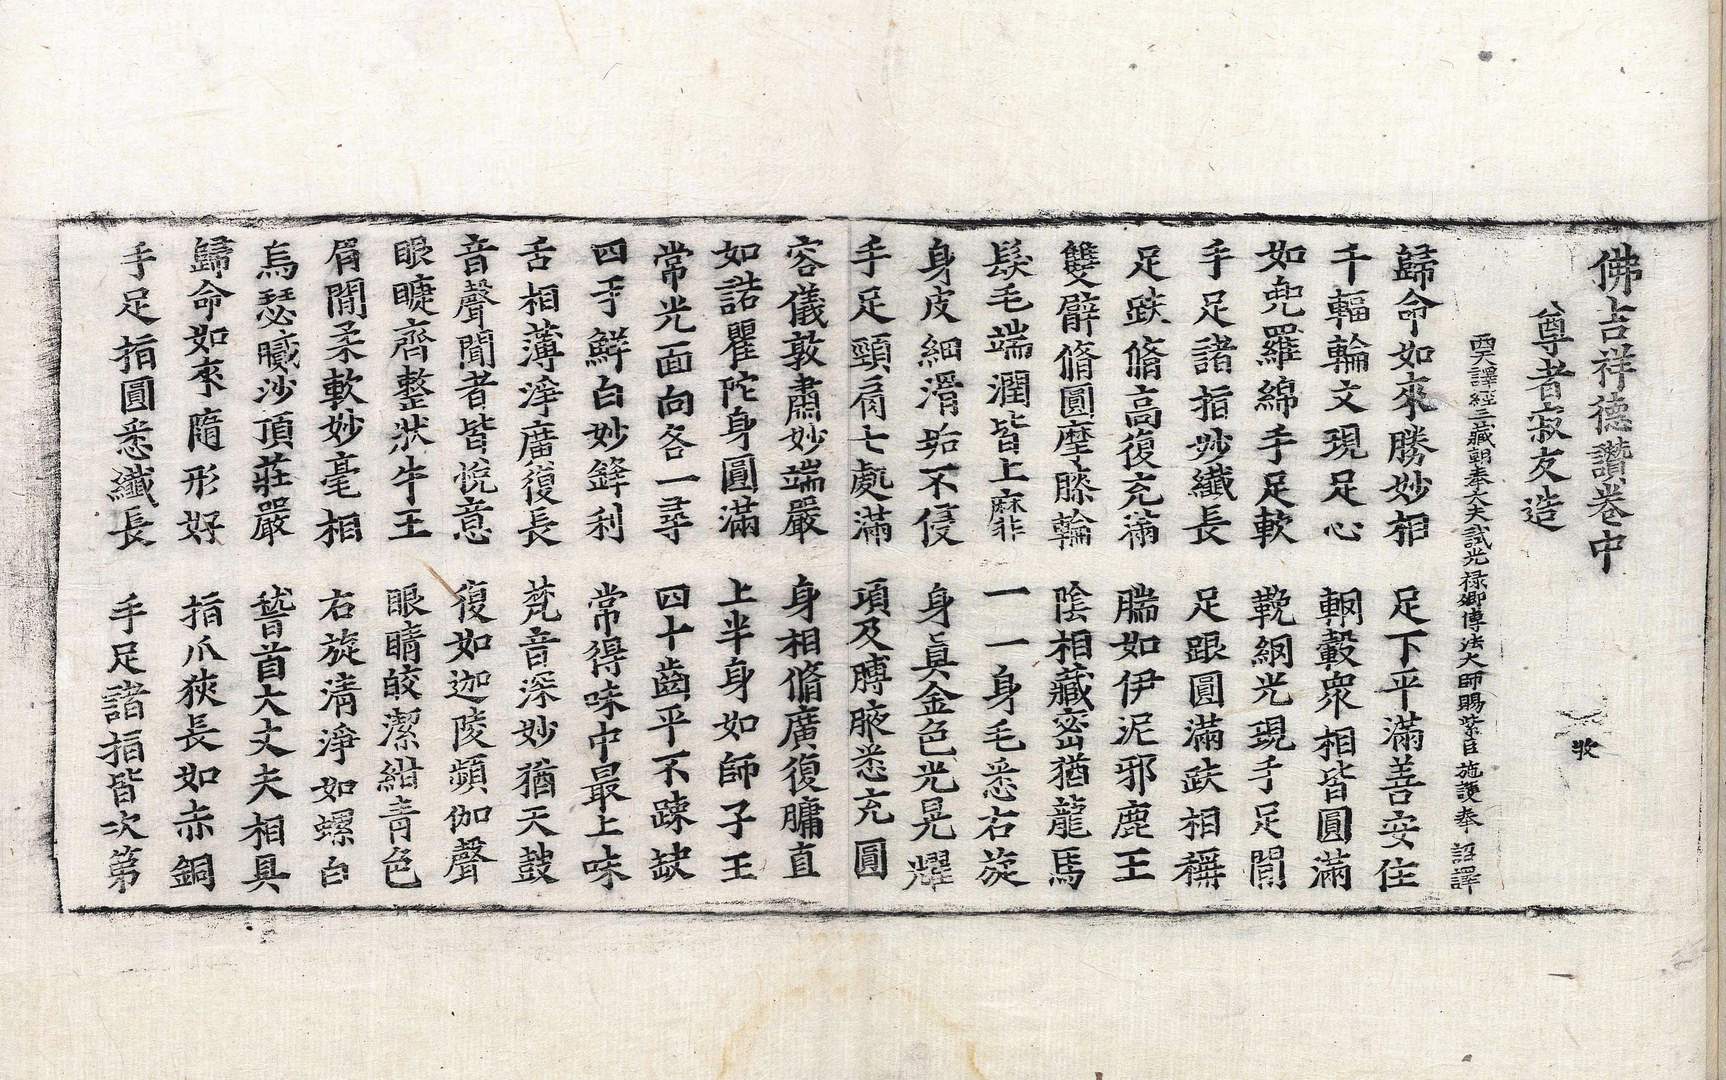 佛吉祥德讚卷中
牧
尊者寂友造
西天譯經三藏朝奉大夫試光祿卿傳法大師賜紫臣施護奉 詔譯
歸命如來勝妙相 足下平滿善安住
千輻輪文現足心 輞轂衆相皆圓滿
如兜羅綿手足軟 鞔網光現手足間
手足諸指妙纖長 足跟圓滿趺相稱
足趺脩高復充滿 腨如伊泥邪鹿王
雙臂脩圓摩膝輪 陰相藏密猶龍馬
髮毛端潤皆上靡 一一身毛悉右旋
身皮細滑垢不侵 身眞金色光晃耀
手足頸肩七處滿 項及膊腋悉充圓
容儀敦肅妙端嚴 身相脩廣復牗直
如諾瞿陀身圓滿 上半身如師子王
常光面向各一尋 四十齒平不踈缺
四牙鮮白妙鋒利 常得味中最上味
舌相薄淨廣復長 梵音深妙猶天鼓
音聲聞者皆悅意 復如迦陵頻伽聲
眼睫齊整狀牛王 眼睛皎潔紺青色
眉間柔軟妙毫相 右旋淸淨如螺白
烏瑟膩沙頂莊嚴 𥡳首大丈夫相具
歸命如來隨形好 指爪狹長如赤銅
手足指圓悉纖長 手足諸指皆次第